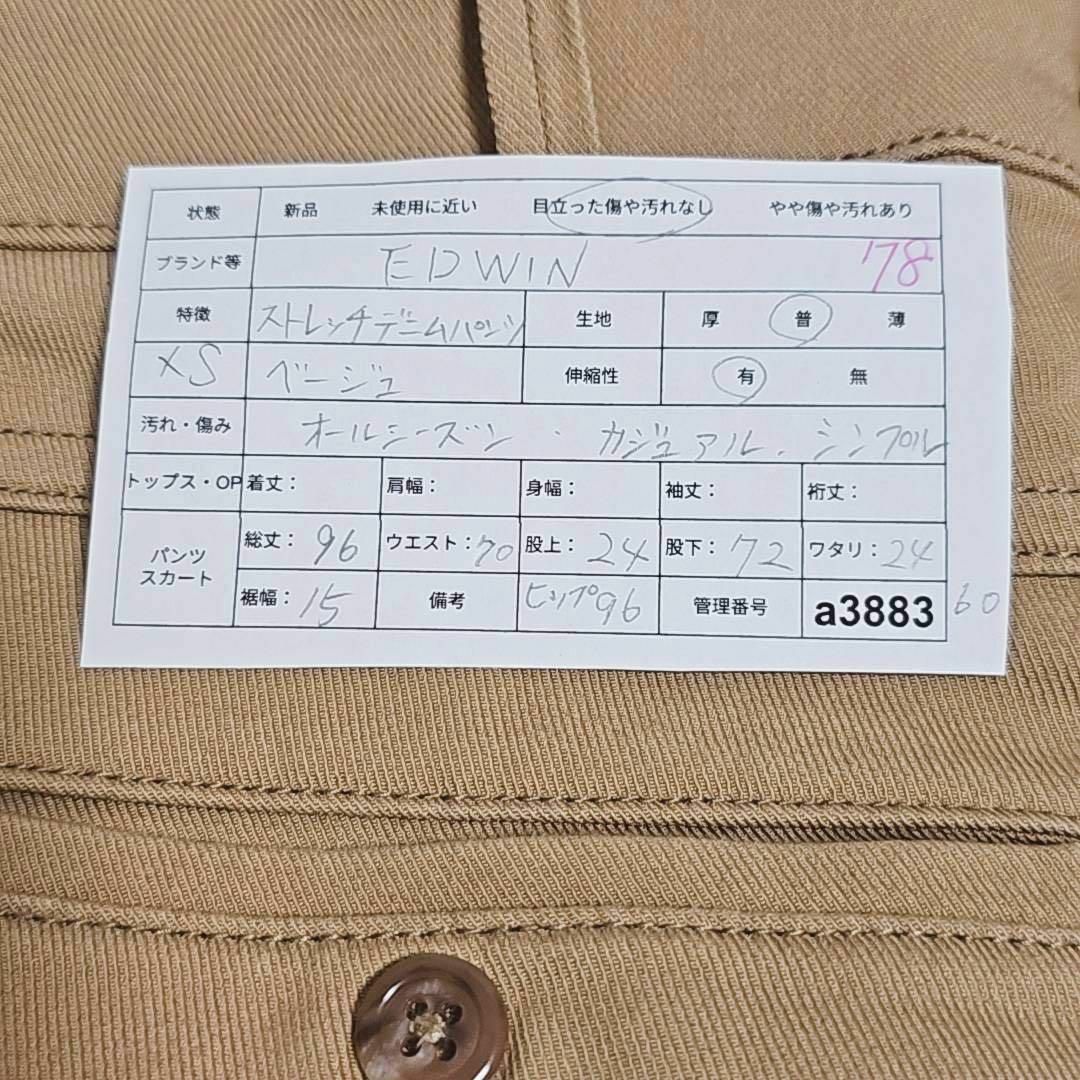 状態 新品 未使用に近い 目立った傷や汚れなし やや傷や汚れあり
ブランド等 EDWIN '78
特徴 ストレッチデニムパンツ 生地 厚 普 薄
XS ベージュ 伸縮性 有 無
汚れ・傷み オールシーズン ・ カジュアル . シンプル
トップス・OP 着丈: 肩幅: 身幅: 袖丈: 裄丈:
パンツ スカート 総丈: 96 ウエスト: 70 股上: 24 股下: 72 ワタリ: 24
裾幅: 15 備考 ヒップ96 管理番号 a3883 60